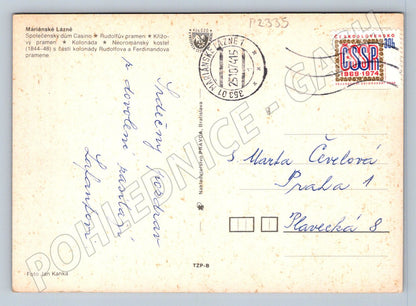 P2335
Mariánské Lázně
Společenský dům Casino ★ Rudolfův pramen ★ Křížo-
vý pramen ★ Kolonáda ★ Neorománský kostel
(1844-48) s částí kolonády Rudolfova a Ferdinandova
pramene
MARIÁNSKÉ LÁZNĚ 1
353 01
25.10.74-15
ČESKOSLOVENSKO
30h
ČSSR
1969-1974
Srdečný pozdrav
z dovolené
S Marta Čevelová
Praha 1
Plavecká 8
Nakladatelstvo PRAVDA, Bratislava
Foto Ján Kaňka
TZP-B
POHLEDNICE - GALI